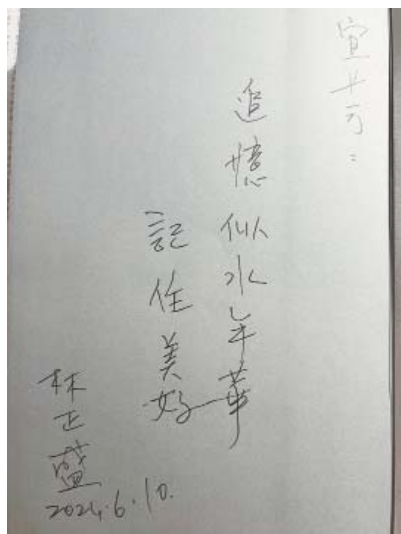 追憶似水年華
記住美好
林正盛
2024.6.10.